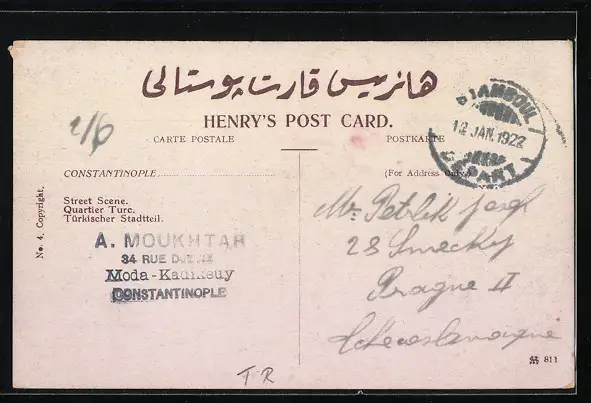 هانریس قارت پوستالی
HENRY'S POST CARD.
CARTE POSTALE
POSTKARTE
STAMBOUL
12 JAN. 1922
DEPART
2/6
CONSTANTINOPLE
(For Address Only)
Street Scene.
Quartier Turc.
Türkischer Stadtteil.
No. 4. Copyright.
A. MOUKHTAR
34 RUE
Moda-Kadikeuy
CONSTANTINOPLE
Mr Petrlik Josef
28 Smecky
Prague II
Tchecoslovaquie
811
TR